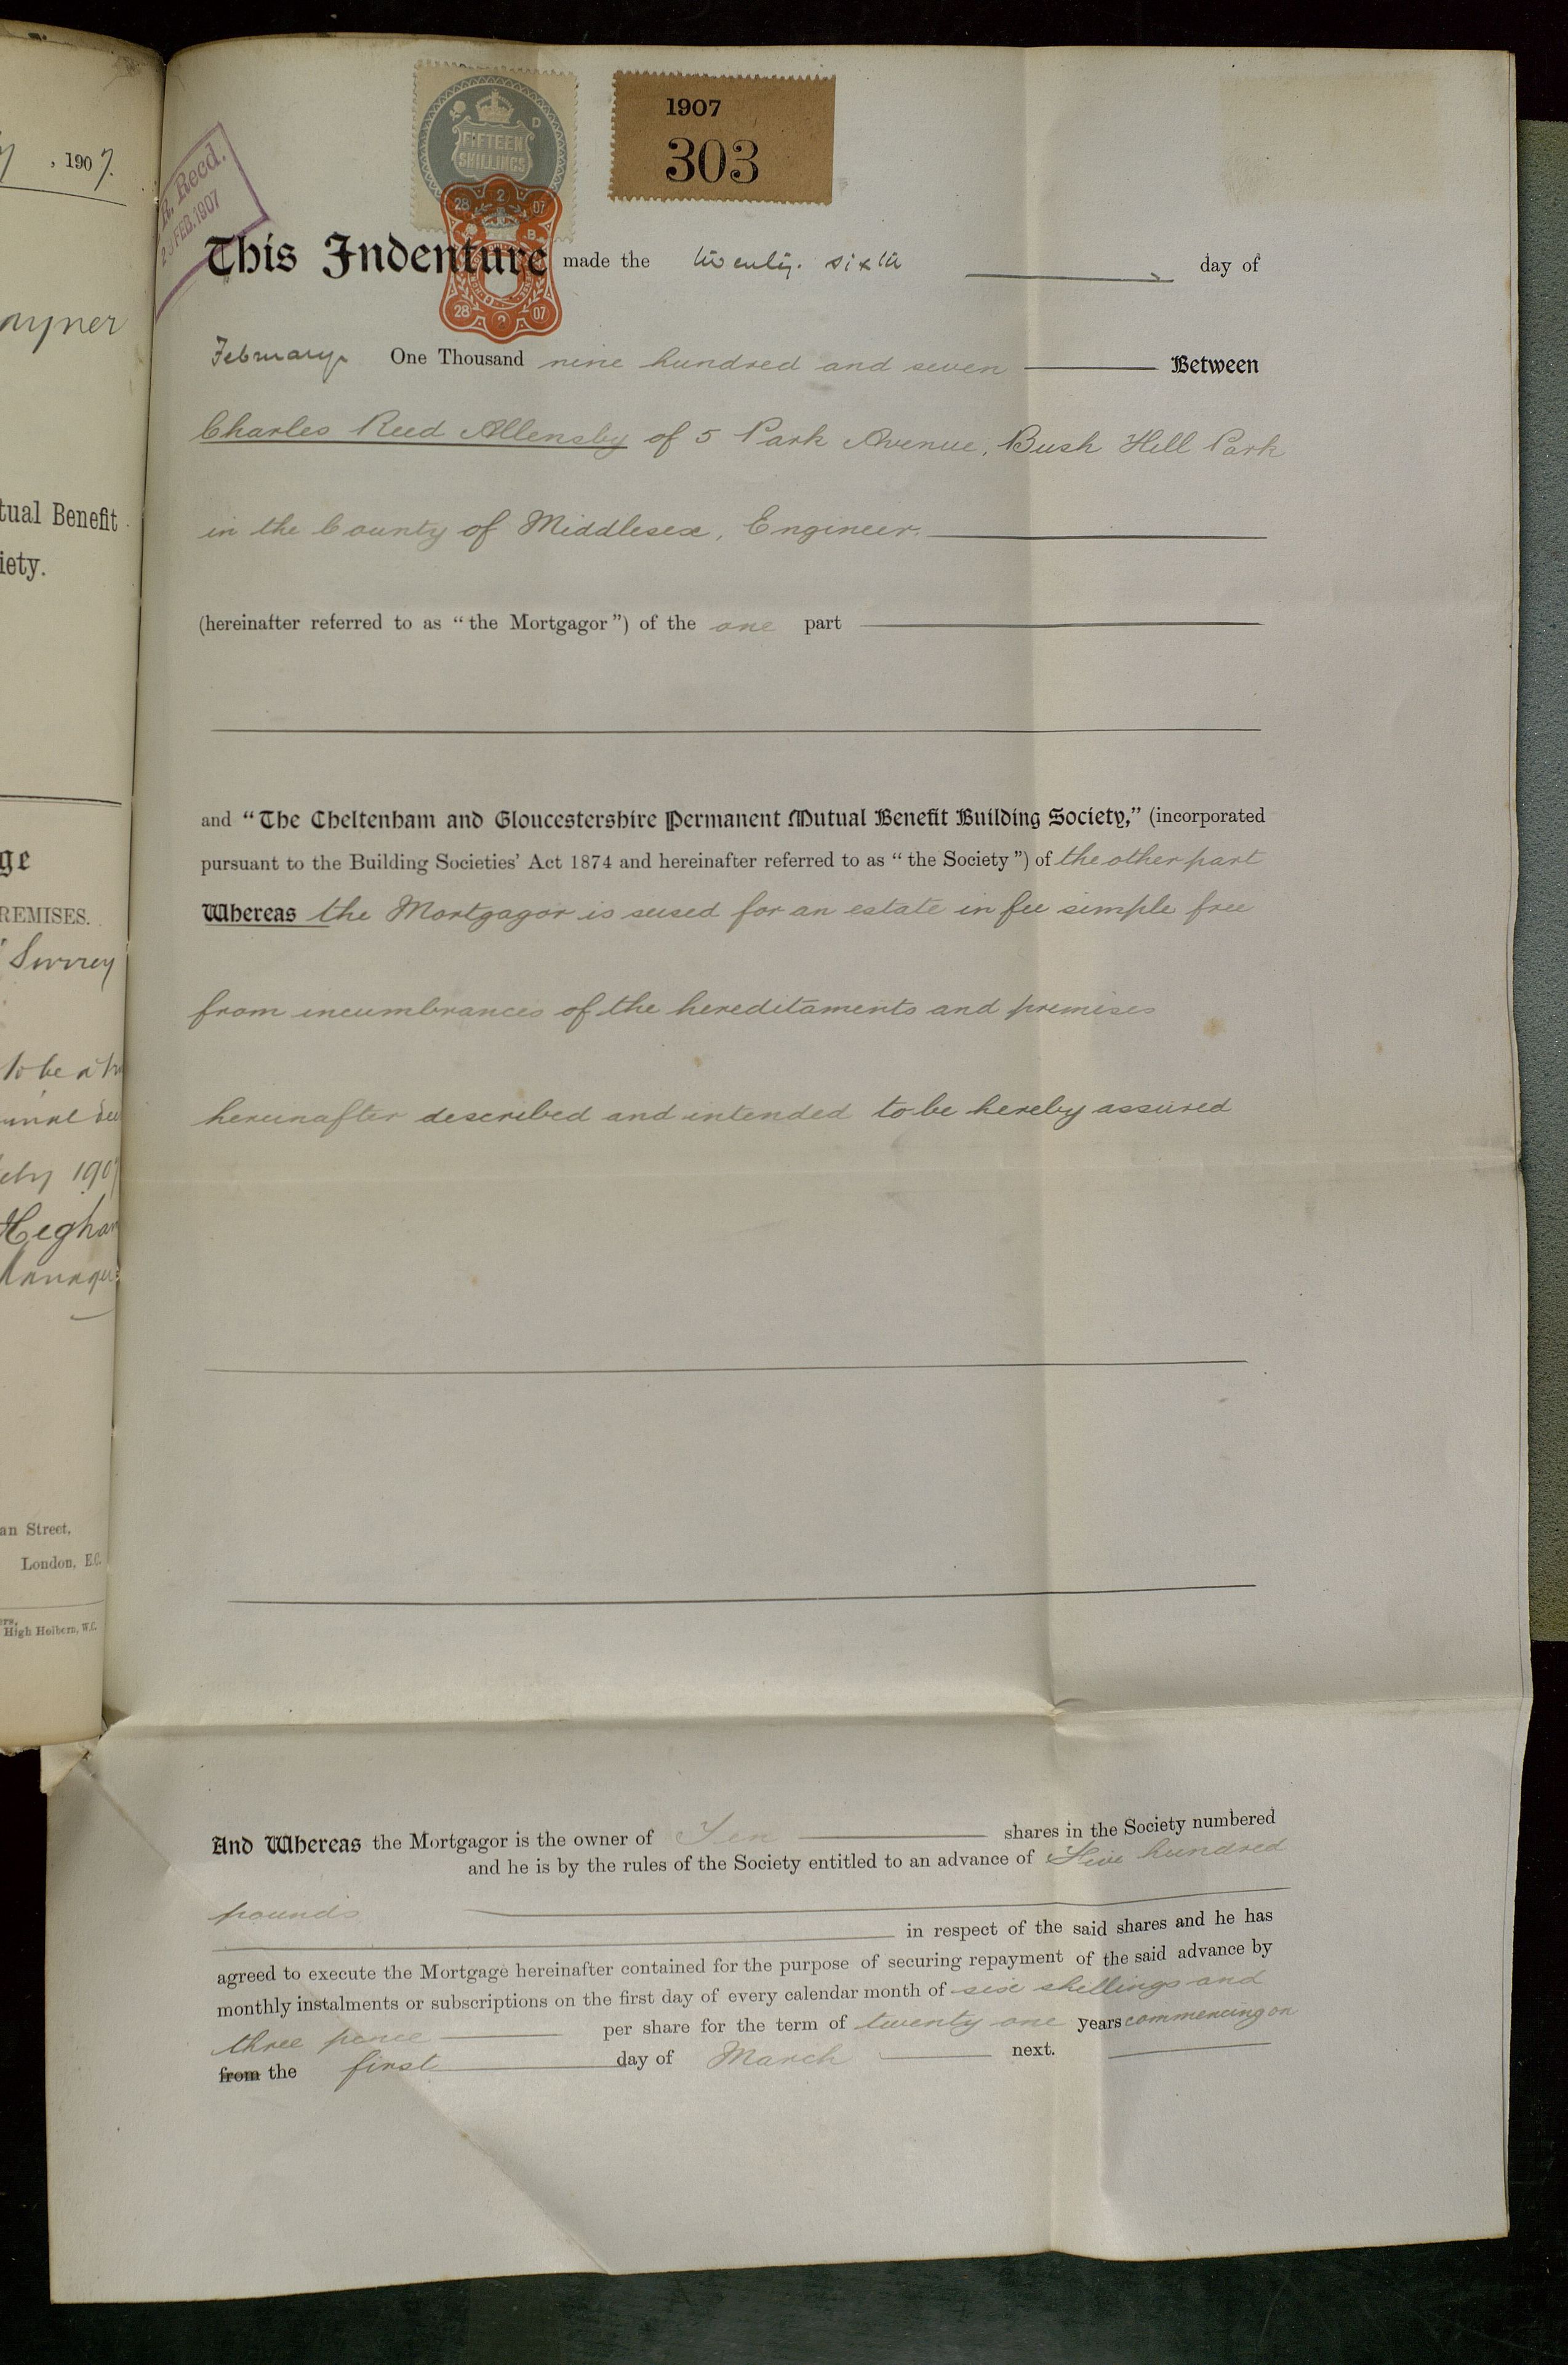 , 1907.
ayner
tual Benefit
iety.
ge
REMISES.
Surrey
to be a
190
Heghan
Manager
an Street,
London, E.C.
ers,
High Holborn, W.C.
R. Recd.
FEB. 1907
FIFTEEN
SHILLINGS
D
1907
303
28 2 07
B
28 2 07
This Indenture made the twenty-sixth day of
February One Thousand nine hundred and seven Between
Charles Reed Allensby of 5 Park Avenue, Bush Hill Park
in the County of Middlesex, Engineer.
(hereinafter referred to as "the Mortgagor") of the one part
and "The Cheltenham and Gloucestershire Permanent Mutual Benefit Building Society," (incorporated
pursuant to the Building Societies' Act 1874 and hereinafter referred to as "the Society") of the other part
Whereas the Mortgagor is seised for an estate in fee simple free
from incumbrances of the hereditaments and premises
hereinafter described and intended to be hereby assured
And Whereas the Mortgagor is the owner of Ten shares in the Society numbered
and he is by the rules of the Society entitled to an advance of Five hundred
pounds
in respect of the said shares and he has
agreed to execute the Mortgage hereinafter contained for the purpose of securing repayment of the said advance by
monthly instalments or subscriptions on the first day of every calendar month of six shillings and
three pence per share for the term of twenty one years commencing on
from the first day of March next.